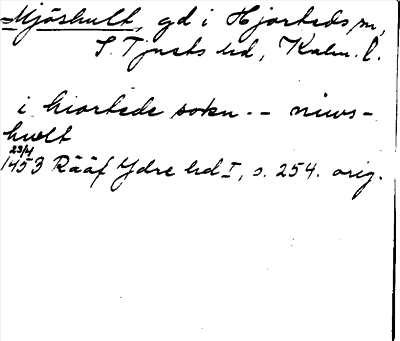 Mjöshult, gd i Hjorteds sn,
S. Tjusts hd, Kalm. l.
i hiortede sokn -- niws-
hwlt
23/4
1453 Rääf Ydre hd I, s. 254. orig.